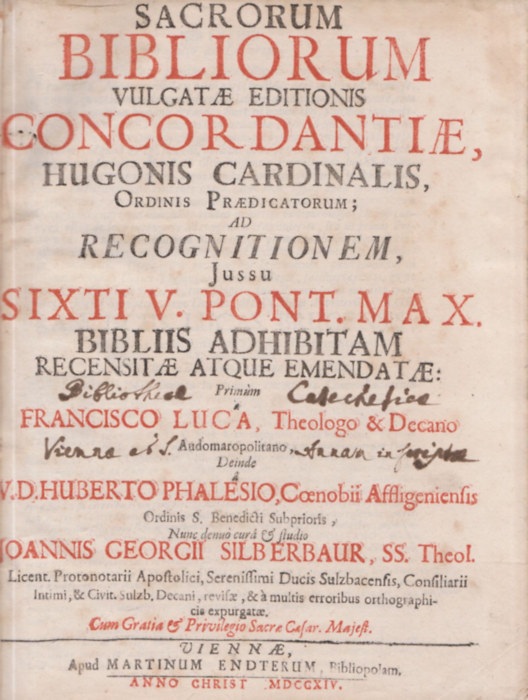 SACRORUM
BIBLIORUM
VULGATÆ EDITIONIS
CONCORDANTIÆ,
HUGONIS CARDINALIS,
ORDINIS PRÆDICATORUM;
AD
RECOGNITIONEM,
Jussu
SIXTI V. PONT. MAX.
BIBLIIS ADHIBITAM
RECENSITÆ ATQUE EMENDATÆ:
Primùm
Bibliothecæ Catecheticæ
à
FRANCISCO LUCA, Theologo & Decano
Viennæ ad S. Audomaropolitano, Annam inscriptæ
Deinde
à
V.D. HUBERTO PHALESIO, Cœnobii Affligeniensis
Ordinis S. Benedicti Subprioris,
Nunc denuò curâ & studio
JOANNIS GEORGII SILBERBAUR, SS. Theol.
Licent. Protonotarii Apostolici, Serenissimi Ducis Sulzbacensis, Consiliarii
Intimi, & Civit. Sulzb. Decani, revisæ, & à multis erroribus orthographi-
cis expurgatæ.
Cum Gratia & Privilegio Sacræ Cæsar. Majest.
VIENNÆ,
Apud MARTINUM ENDTERUM, Bibliopolam.
ANNO CHRIST MDCCXIV.